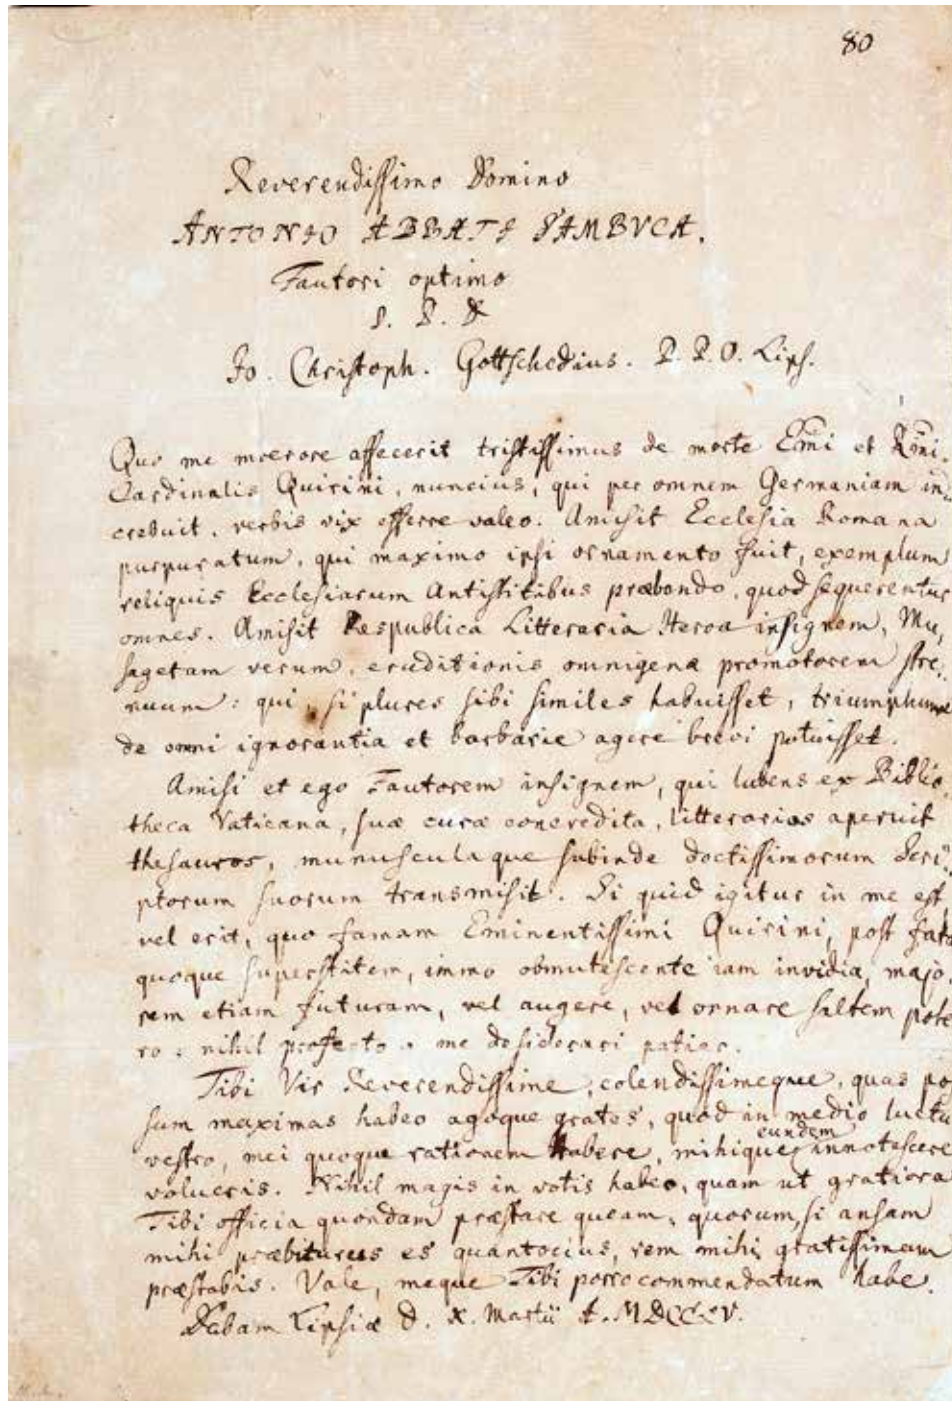 80
Reverendissimo Domino
ANTONIO ABBATI SAMBVCA.
Fautori optimo
S. P. D
Jo. Christoph. Gottschedius. P. P. O. Lips.
Quo me moerore affecerit tristissimus de morte Emi et Rmi.
Cardinalis Quirini, nuncius, qui per omnem Germaniam in,
crebuit, verbis vix efferre valeo. Amisit Ecclesia Romana
purpuratum, qui maximo ipsi ornamento fuit, exemplum
reliquis Ecclesiarum Antistitibus præbendo, quod sequerentur
omnes. Amisit Respublica Litteraria Heroa insignem, Mu,
sagetam verum, eruditionis omnigenæ promotorem stre,
nuum: qui, si plures sibi similes habuisset, triumphum
de omni ignorantia et barbarie agere brevi potuisset.
Amisi et ego Fautorem insignem, qui lubens ex Biblio,
theca Vaticana, suæ curæ concredita, litterarios aperuit
thesauros, munusculaque subinde doctissimorum Scri,
ptorum suorum transmisit. Si quid igitur in me est,
vel erit, quo famam Eminentissimi Quirini, post fata
quoque superstitem, immo obmutescente iam invidia, majo,
rem etiam futuram, vel augere, vel ornare saltem pote
ro: nihil profecto, me desiderari patiar.
Tibi Vir Reverendissime, colendissimeque, quas pos
sum maximas habeo agoque grates, quod in medio luctu
vestro, mei quoque rationem habere, mihique eundem innotescere
volueris. Nihil magis in votis habeo, quam ut gratiora
Tibi officia quondam præstare queam, quorum, si ansam
mihi præbiturus es quantocius, rem mihi gratissimam
præstabis. Vale, meque Tibi porro commendatum habe.
Dabam Lipsiæ d. X. Martii A. MDCCLV.